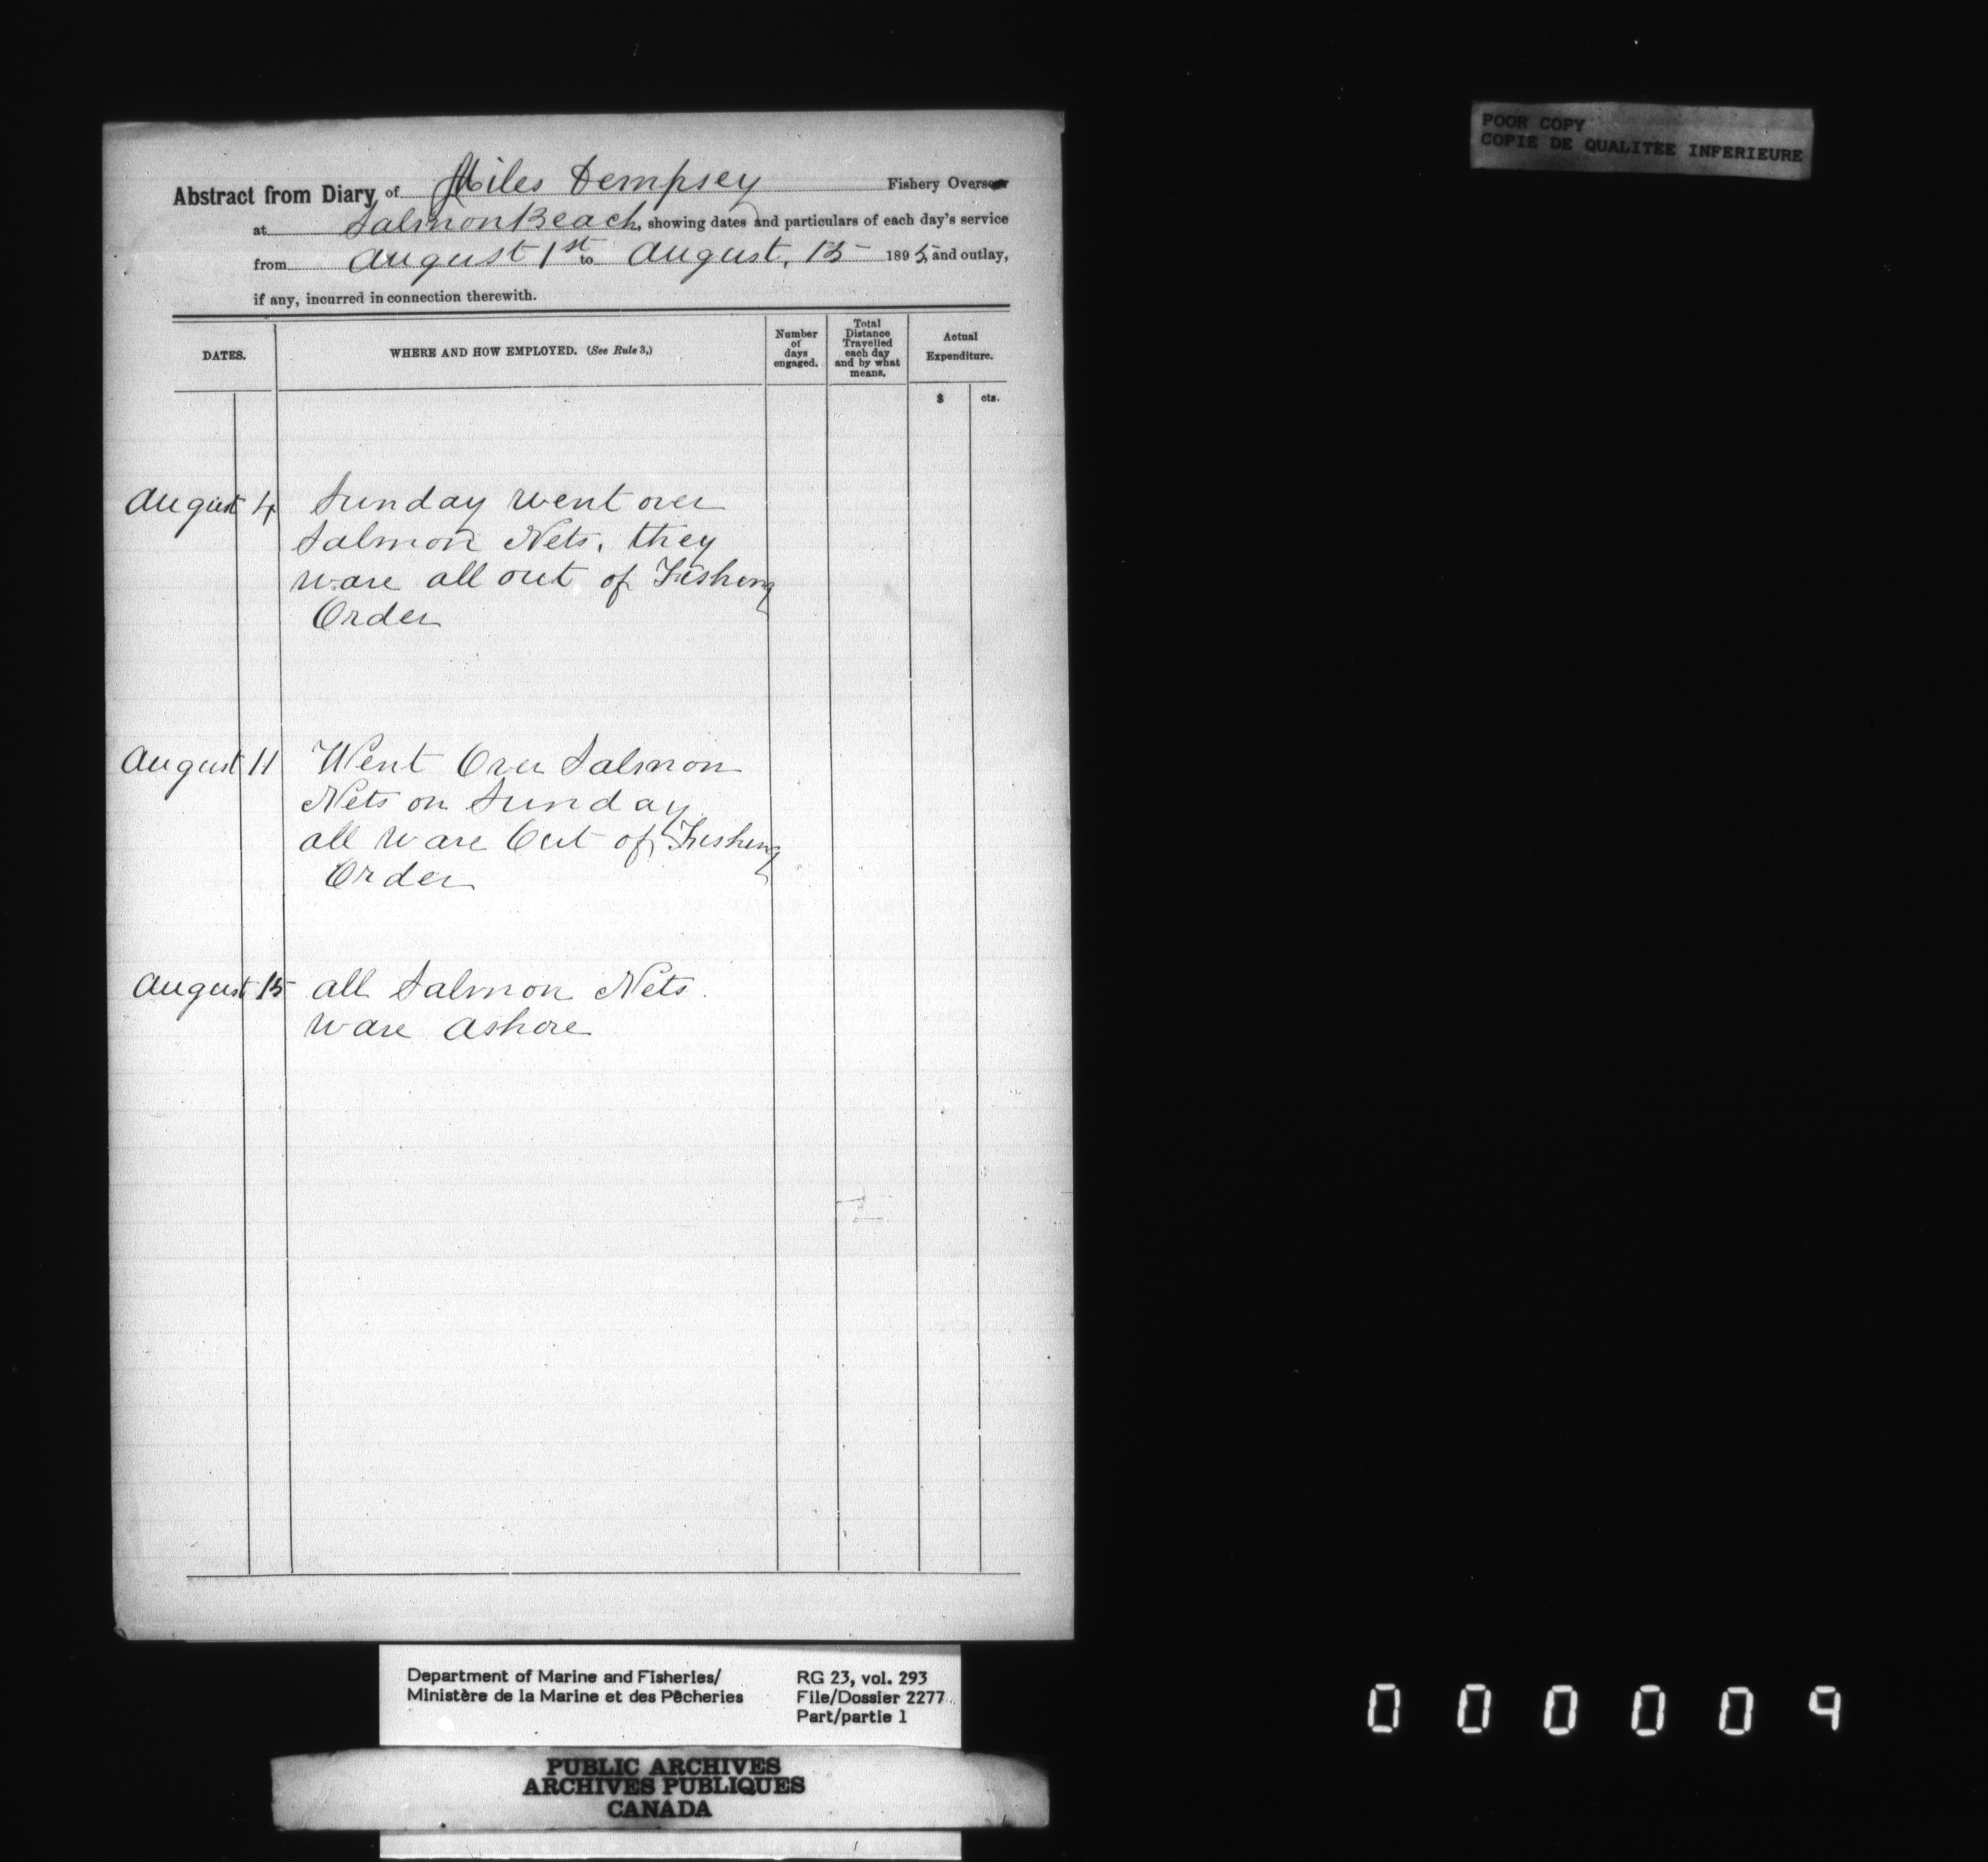 POOR COPY
COPIE DE QUALITEE INFERIEURE
Abstract from Diary of Miles Dempsey Fishery Overseer
at Salmon Beach, showing dates and particulars of each day's service
from August 1st to August, 15 1895, and outlay,
if any, incurred in connection therewith.
DATES.
WHERE AND HOW EMPLOYED. (See Rule 3,)
Number
of
days
engaged.
Total
Distance
Travelled
each day
and by what
means.
Actual
Expenditure.
$ cts.
August 4 Sunday went over
Salmon Nets, they
ware all out of Fishing
Order
August 11 Went Over Salmon
Nets on Sunday
all ware Out of Fishing
Order
August 15 all Salmon Nets
ware ashore
Department of Marine and Fisheries/
Ministère de la Marine et des Pêcheries
RG 23, vol. 293
File/Dossier 2277
Part/partie 1
PUBLIC ARCHIVES
ARCHIVES PUBLIQUES
CANADA
000009